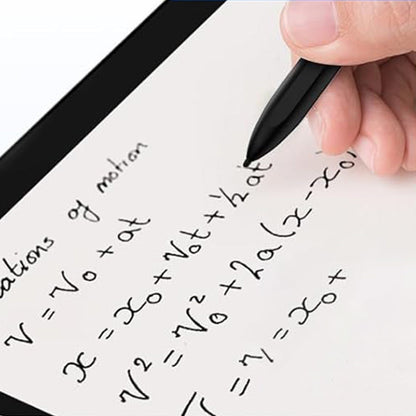 ations of motion
v = v₀ + at
x = x₀ + v₀t + ½ at
v² = v₀² + 2a(x-x₀)
= x₀ +